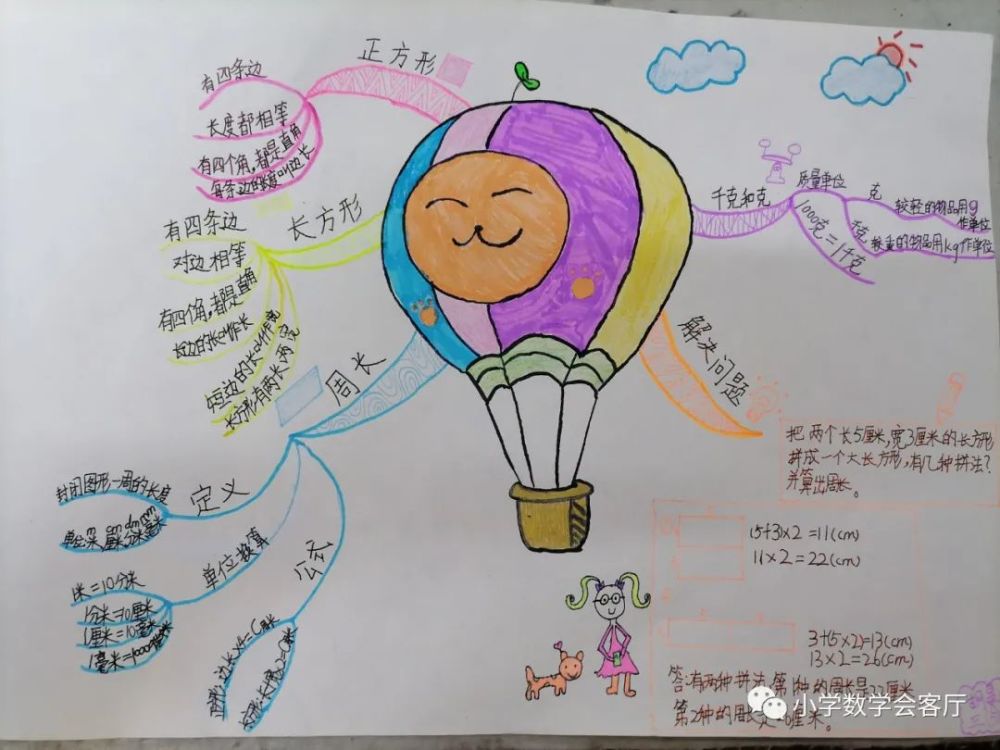 正方形
有四条边
长度都相等
有四个角,都是直角
每条边的长度叫边长
长方形
有四条边
对边相等
有四个角,都是直角
长边的长叫作长
短边的长叫作宽
长方形有两长两宽
周长
定义
封闭图形一周的长度
单位换算
1米=10分米
1分米=10厘米
1厘米=10毫米
公式
千克和克
质量单位
克
较轻的物品用g
作单位
千克
较重的物品用kg作单位
1000克=1千克
解决问题
把两个长5厘米,宽3厘米的长方形
拼成一个大长方形,有几种拼法?
并算出周长。
(5+3)×2=11(cm)
11×2=22(cm)
3+(5×2)=13(cm)
13×2=26(cm)
答:有两种拼法,第1种的周长是22厘米
第2种的周长是 厘米。
小学数学会客厅